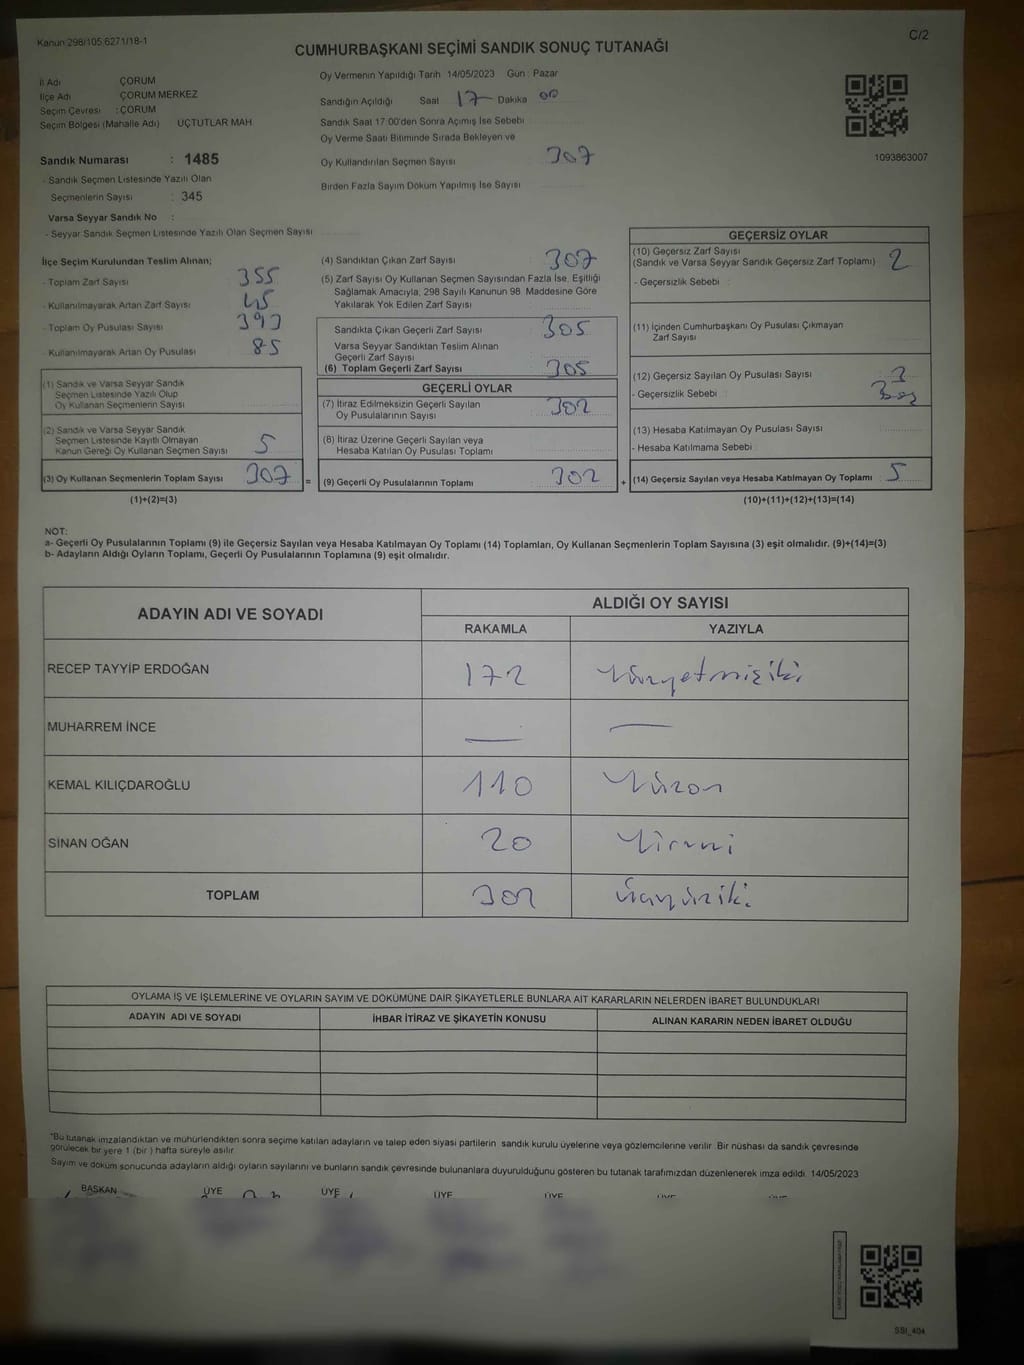 Kanun:298/105;6271/18-1
C/2
CUMHURBAŞKANI SEÇİMİ SANDIK SONUÇ TUTANAĞI
İl Adı ÇORUM
İlçe Adı ÇORUM MERKEZ
Seçim Çevresi : ÇORUM
Seçim Bölgesi (Mahalle Adı) UÇTUTLAR MAH
Oy Vermenin Yapıldığı Tarih 14/05/2023 Gün : Pazar
Sandığın Açıldığı Saat 17 Dakika 00
Sandık Saat 17:00'den Sonra Açımış İse Sebebi
Oy Verme Saati Bitiminde Sırada Bekleyen ve
Oy Kullandırılan Seçmen Sayısı 307
Birden Fazla Sayım Döküm Yapılmış İse Sayısı
1093863007
Sandık Numarası : 1485
- Sandık Seçmen Listesinde Yazılı Olan
Seçmenlerin Sayısı : 345
Varsa Seyyar Sandık No :
- Seyyar Sandık Seçmen Listesinde Yazılı Olan Seçmen Sayısı
İlçe Seçim Kurulundan Teslim Alınan;
- Toplam Zarf Sayısı 355
- Kullanılmayarak Artan Zarf Sayısı 45
- Toplam Oy Pusulası Sayısı
- Kullanılmayarak Artan Oy Pusulası 85
(1) Sandık ve Varsa Seyyar Sandık
Seçmen Listesinde Yazılı Olup
Oy Kullanan Seçmenlerin Sayısı
(2) Sandık ve Varsa Seyyar Sandık
Seçmen Listesinde Kayıtlı Olmayan
Kanun Gereği Oy Kullanan Seçmen Sayısı 5
(3) Oy Kullanan Seçmenlerin Toplam Sayısı 307
(1)+(2)=(3)
=
(4) Sandıktan Çıkan Zarf Sayısı 307
(5) Zarf Sayısı Oy Kullanan Seçmen Sayısından Fazla İse, Eşitliği
Sağlamak Amacıyla, 298 Sayılı Kanunun 98. Maddesine Göre
Yakılarak Yok Edilen Zarf Sayısı
Sandıkta Çıkan Geçerli Zarf Sayısı 305
Varsa Seyyar Sandıktan Teslim Alınan
Geçerli Zarf Sayısı
(6) Toplam Geçerli Zarf Sayısı 305
GEÇERLİ OYLAR
(7) İtiraz Edilmeksizin Geçerli Sayılan
Oy Pusulalarının Sayısı 302
(8) İtiraz Üzerine Geçerli Sayılan veya
Hesaba Katılan Oy Pusulası Toplamı
(9) Geçerli Oy Pusulalarının Toplamı 302
+
GEÇERSİZ OYLAR
(10) Geçersiz Zarf Sayısı
(Sandık ve Varsa Seyyar Sandık Geçersiz Zarf Toplamı) 2
- Geçersizlik Sebebi :
(11) İçinden Cumhurbaşkanı Oy Pusulası Çıkmayan
Zarf Sayısı
(12) Geçersiz Sayılan Oy Pusulası Sayısı 3
- Geçersizlik Sebebi :
(13) Hesaba Katılmayan Oy Pusulası Sayısı
- Hesaba Katılmama Sebebi
(14) Geçersiz Sayılan veya Hesaba Katılmayan Oy Toplamı 5
(10)+(11)+(12)+(13)=(14)
NOT:
a- Geçerli Oy Pusulalarının Toplamı (9) ile Geçersiz Sayılan veya Hesaba Katılmayan Oy Toplamı (14) Toplamları, Oy Kullanan Seçmenlerin Toplam Sayısına (3) eşit olmalıdır. (9)+(14)=(3)
b- Adayların Aldığı Oyların Toplamı, Geçerli Oy Pusulalarının Toplamına (9) eşit olmalıdır.
ADAYIN ADI VE SOYADI ALDIĞI OY SAYISI
RAKAMLA YAZIYLA
RECEP TAYYİP ERDOĞAN 172 Yüzyetmişiki
MUHARREM İNCE — —
KEMAL KILIÇDAROĞLU 110 Yüzon
SİNAN OĞAN 20 Yirmi
TOPLAM 302 Üçyüziki
OYLAMA İŞ VE İŞLEMLERİNE VE OYLARIN SAYIM VE DÖKÜMÜNE DAİR ŞİKAYETLERLE BUNLARA AİT KARARLARIN NELERDEN İBARET BULUNDUKLARI
ADAYIN ADI VE SOYADI İHBAR İTİRAZ VE ŞİKAYETİN KONUSU ALINAN KARARIN NEDEN İBARET OLDUĞU
*Bu tutanak imzalandıktan ve mühürlendikten sonra seçime katılan adayların ve talep eden siyasi partilerin sandık kurulu üyelerine veya gözlemcilerine verilir. Bir nüshası da sandık çevresinde
görülecek bir yere 1 (bir) hafta süreyle asılır.
Sayım ve döküm sonucunda adayların aldığı oyların sayılarını ve bunların sandık çevresinde bulunanlara duyurulduğunu gösteren bu tutanak tarafımızdan düzenlenerek imza edildi. 14/05/2023
BAŞKAN ÜYE ÜYE ÜYE ÜYE
SSI_404